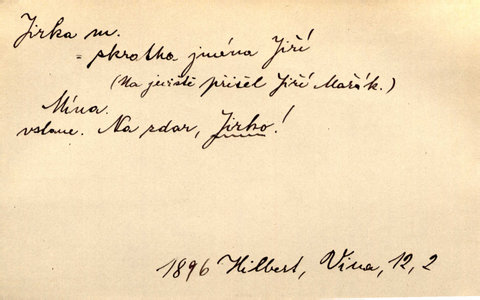 Jirka m.
= skratka jména Jiří
(Na jeviště přišel Jiří Mařák.)
Mína.
vstane. Na zdar, Jirko!
1896 Hilbert, Vina, 12, 2